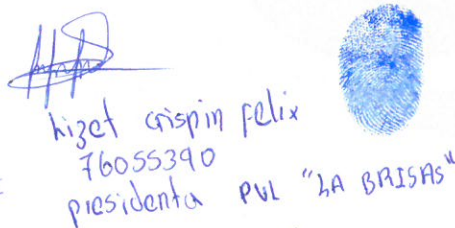 Lizet crispin felix
76055390
presidenta PVL "LA BRISAS"